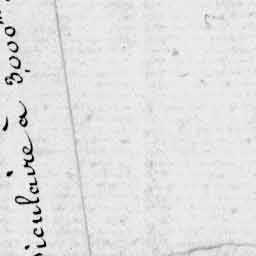 iculaire à 3,000m